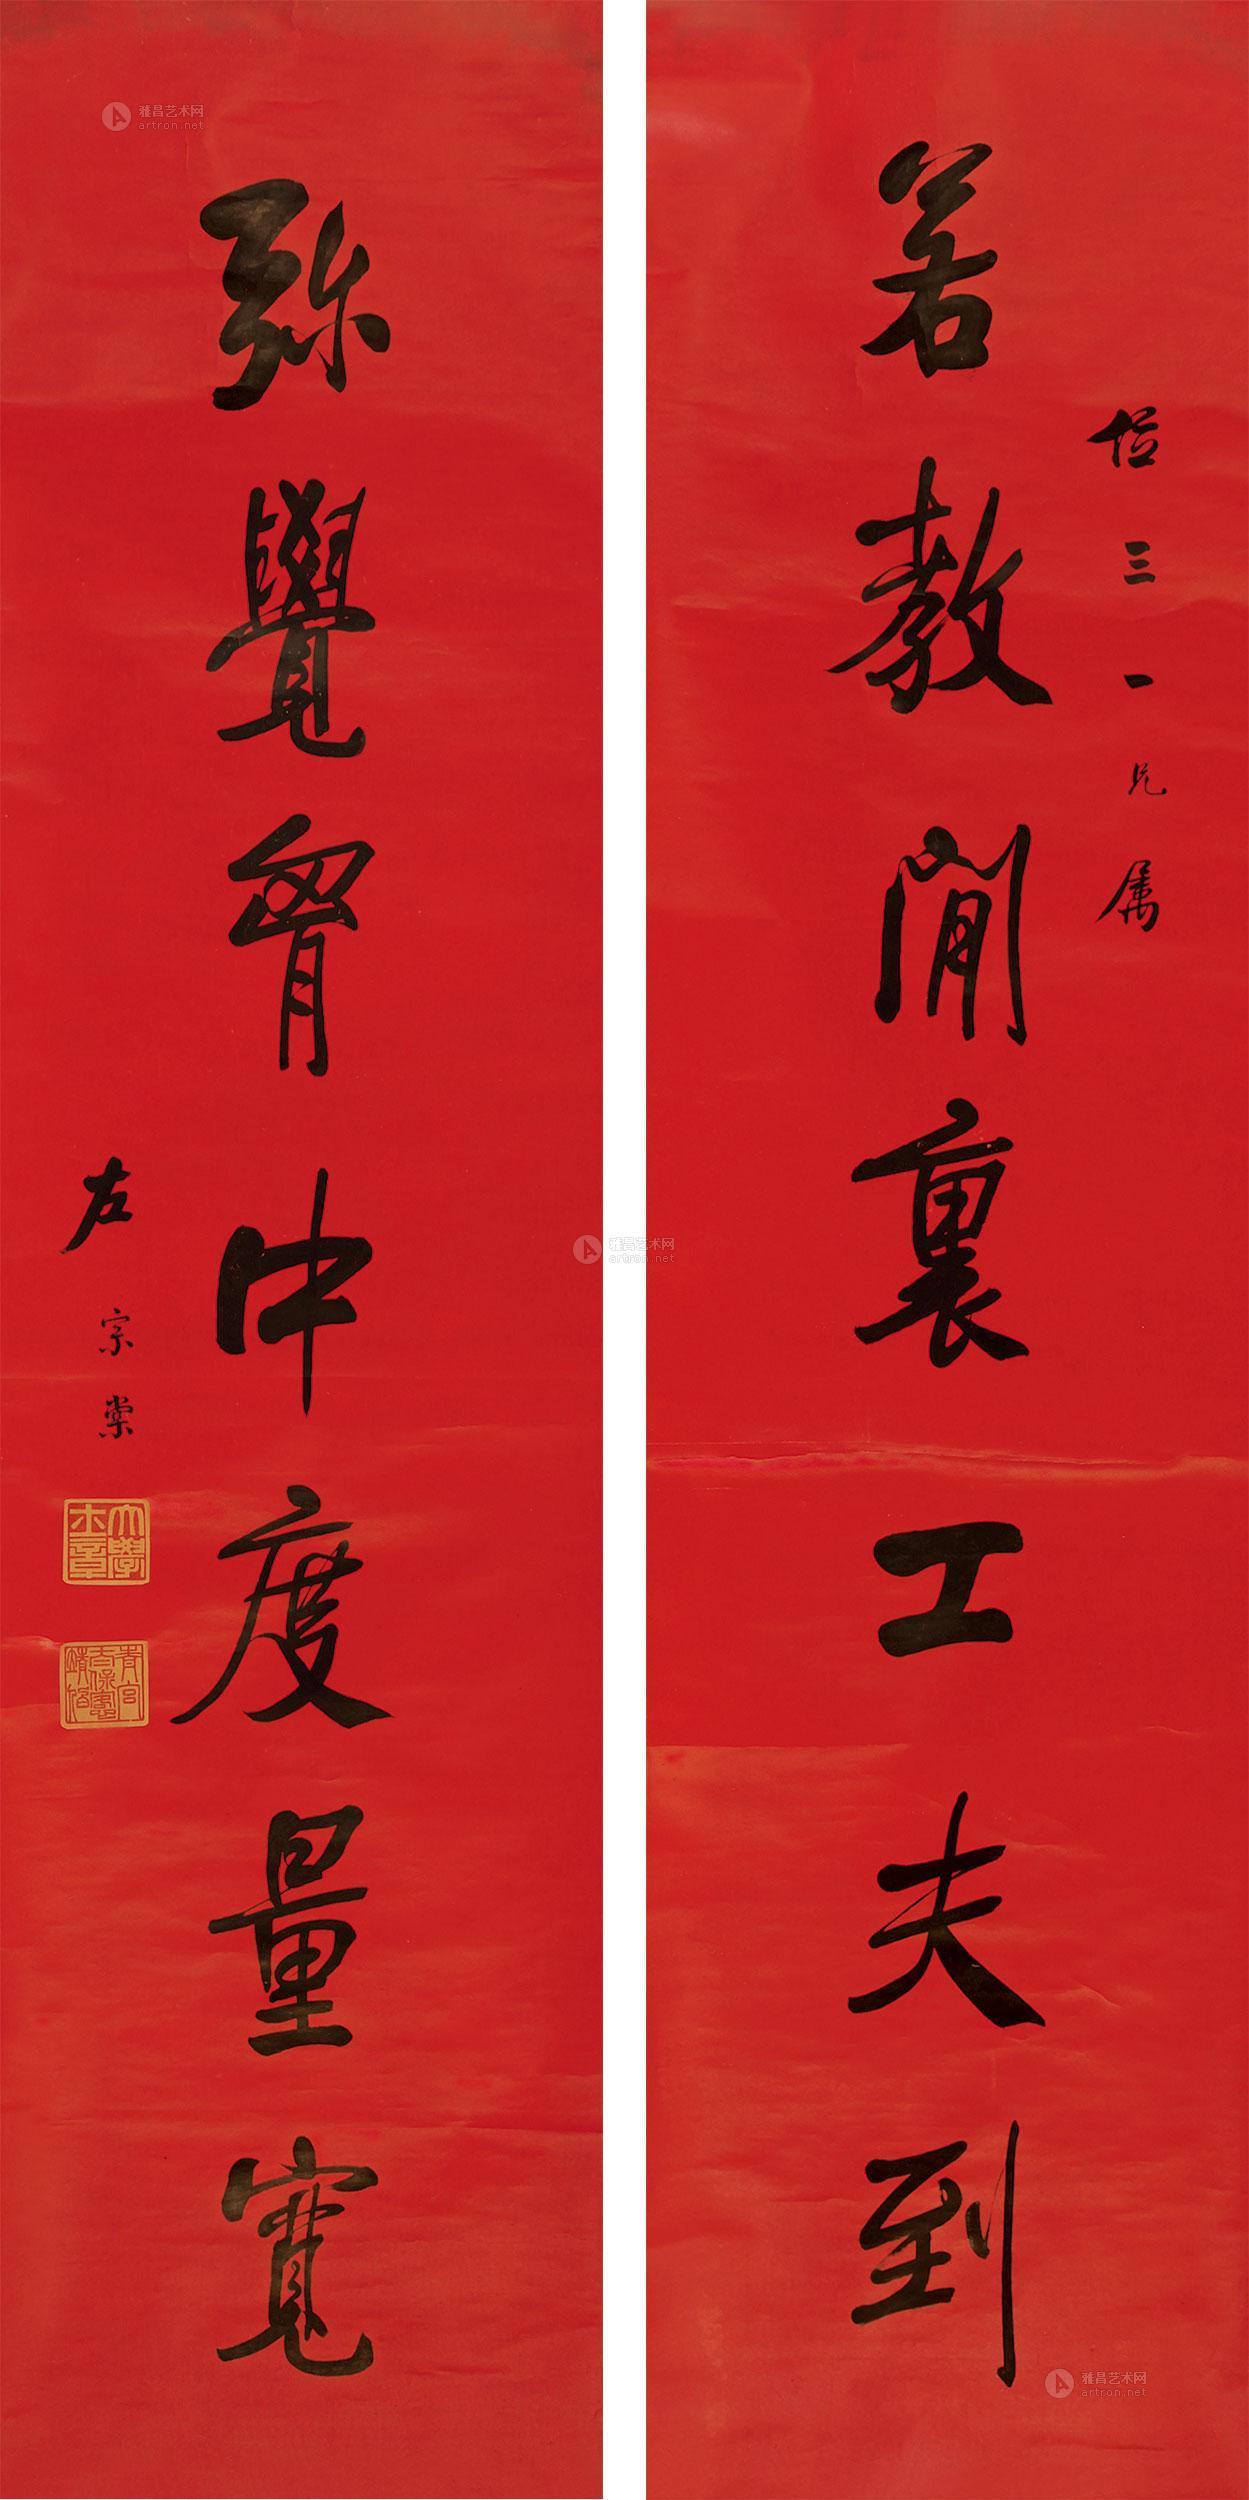 若教閒裏工夫到
三一兄属
弥覺胷中度量寬
左宗棠
大學士章
青宮太保
雅昌艺术网
artron.net
雅昌艺术网
artron.net
雅昌艺术网
artron.net